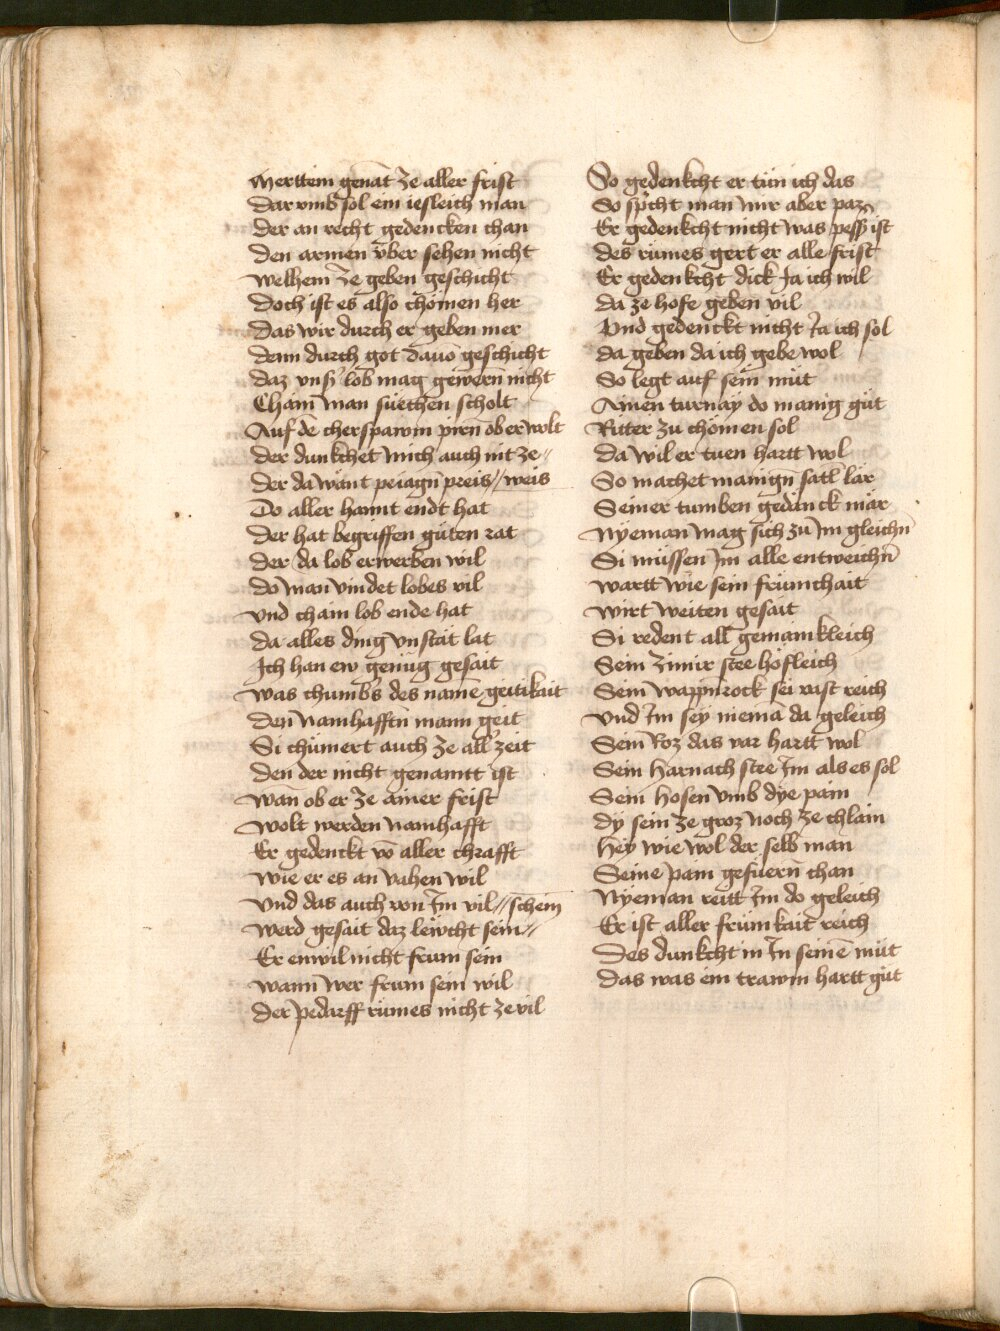 Werttem genāt ze aller frist
Darvmb sol ein iesleich man
Der an recht gedencken chan
Den armen v̈ber sehen nicht
Welhem ze geben geschicht
Doch ist es also chömen her
Das wir durch er geben mer
Denn durch got dauō geschicht
Daz vnser lob mag gewern̄ nicht
Cham̄ man suethen̄ scholt
Auf dē cherspawm pirn̄ ob er wolt
Der dunkchet mich auch nit ze//
Der da want peiagn̄ preis // weis
Do aller hannt endt hat
Der hat begriffen gůten rat
Der da lob erwerben wil
do man vindet lobes vil
Vnd chain lob ende hat
Da alles ding vnstät lat
Ich han ew genüg gesait
Was chumbs des namē geitikait
Den namhafftn̄ mann geit
Si chümert auch ze aller zeit
Den der nicht genamtt ist
Wan̄ ob er ze ainer frist
Wolt werden namhafft
Er gedenckt vō aller chrafft
Wie er es an vahen wil
Vnd das auch von Im vil // schem
Werd gesait daz lewcht sein //
Er enwil nicht frum sein
Wann̄ wer frum sein wil
Der pedarff rümes nicht ze vil
So gedenkcht er tün ich das
So spricht man mir aber paz
Er gedenkcht nicht was pesser ist
Des rümes gert er alle frist
Er gedenkcht dick Ja ich wil
Da ze hofe geben vil
Vnd gedenckt nicht Ja ich sol
Da geben da ich gebe wol
So legt auf sein müt
Ainen turnay do manig güt
Ritter zu chömen sol
Da wil er tuen hartt wol
So machet manign̄ satl lär
Seiner tumben gedanck mär
Nyeman mag sich zu Im gleichn̄
Si müssen Im alle entweichn̄
Wartt wie sein frümchait
Wirt weiten gesait
Si redent all gemainkleich
Sein zimir stee höfleich
Sein wappnrock sei vast reich
Vnd Im sey niemā da geleich
Sein Roz das var hartt wol
Sein harnach stee Im als es sol
Sein hosen vmb dye pain
Dy sein ze groz noch ze chlain
Hey wie wol der selb man
Seine pain gefuern̄ chan
Nyeman reitt Im do geleich
Er ist aller frümkait reich
Des dunkcht in In seinē müt
Das was ein trawm hartt güt